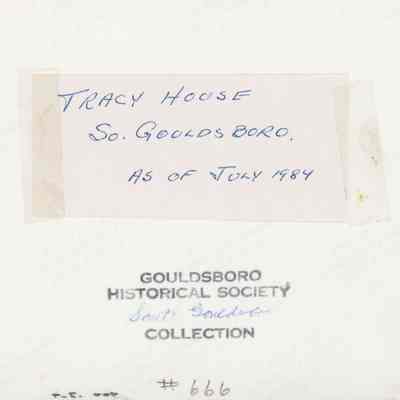 TRACY HOUSE
SO. GOULDSBORO.
AS OF JULY 1984
GOULDSBORO
HISTORICAL SOCIETY
South Gouldsboro
COLLECTION
# 666